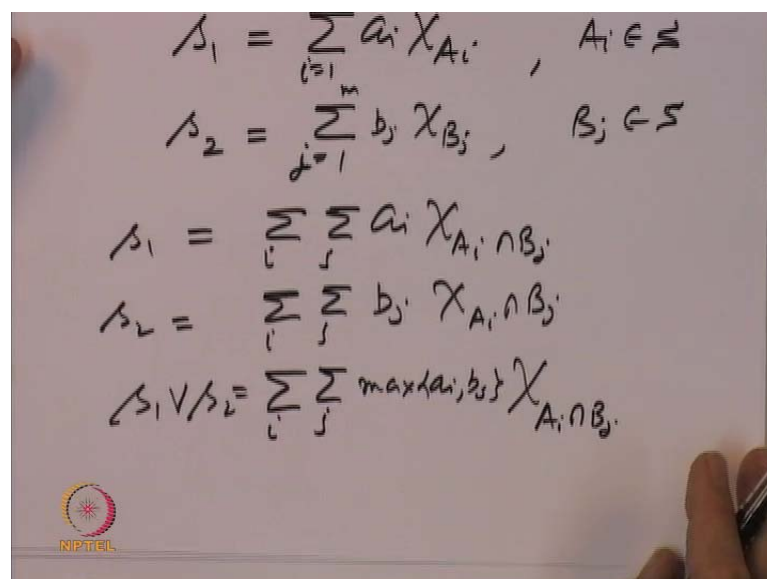 s₁ = ∑_{i=1} aᵢ χ_{Aᵢ} , Aᵢ ∈ S
s₂ = ∑_{j=1}^{m} bⱼ χ_{Bⱼ} , Bⱼ ∈ S
s₁ = ∑_i ∑_j aᵢ χ_{Aᵢ ∩ Bⱼ}
s₂ = ∑_i ∑_j bⱼ χ_{Aᵢ ∩ Bⱼ}
s₁ ∨ s₂ = ∑_i ∑_j max{aᵢ, bⱼ} χ_{Aᵢ ∩ Bⱼ}.
NPTEL